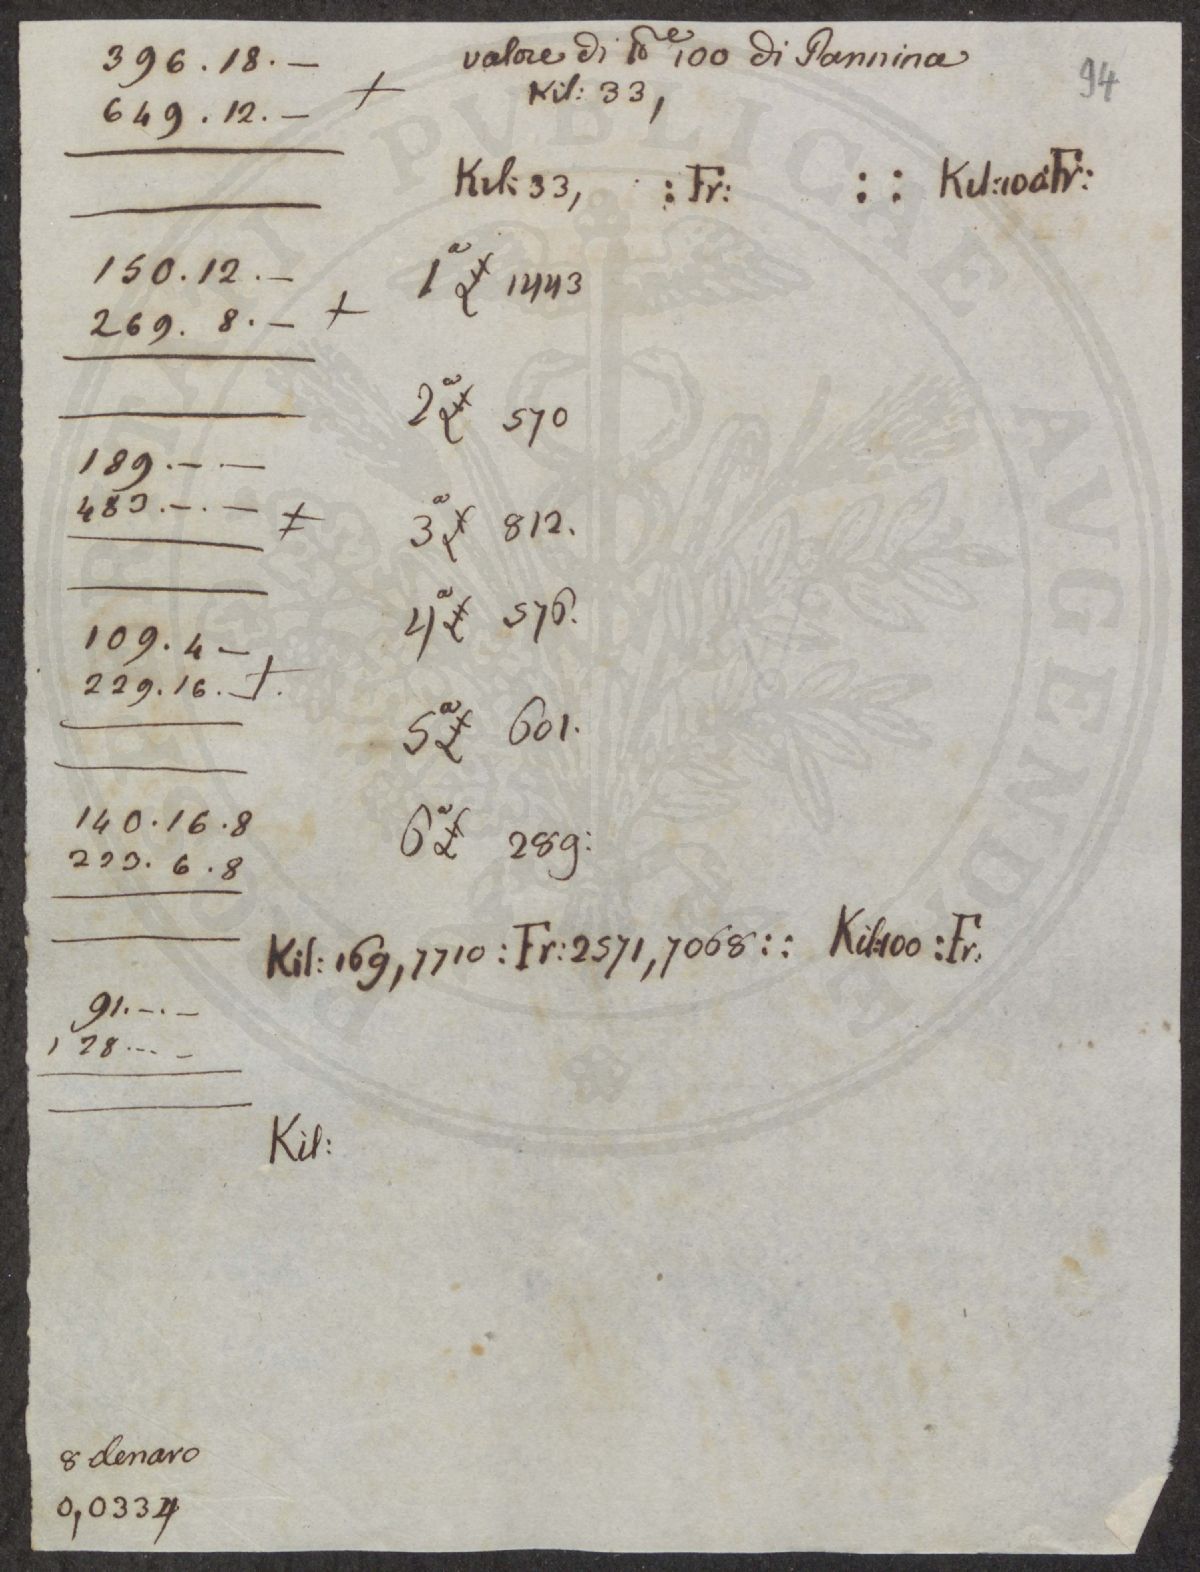 396.18.—
649.12.—
valore di lb.e 100 di Pannina
Kil: 33,
94
Kil: 33,   : Fr:   : :   Kil: 100: Fr:
150.12.—
269. 8.—
1a ₤ 1443
2a ₤ 570
189.—.—
483.—.—
3a ₤ 812.
4a ₤ 576.
109.4—
229.16.
5a ₤ 601.
140.16.8
223.6.8
6a ₤ 289:
Kil: 169,7710 : Fr: 2571,7068 : : Kil:100 : Fr:
91.—.—
128.—.—
Kil:
8 denaro
0,0334